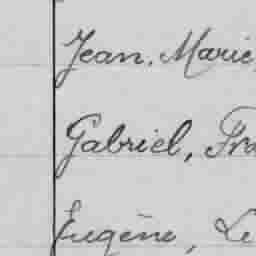 Jean. Marie,
Gabriel, Fra
Eugène, Le